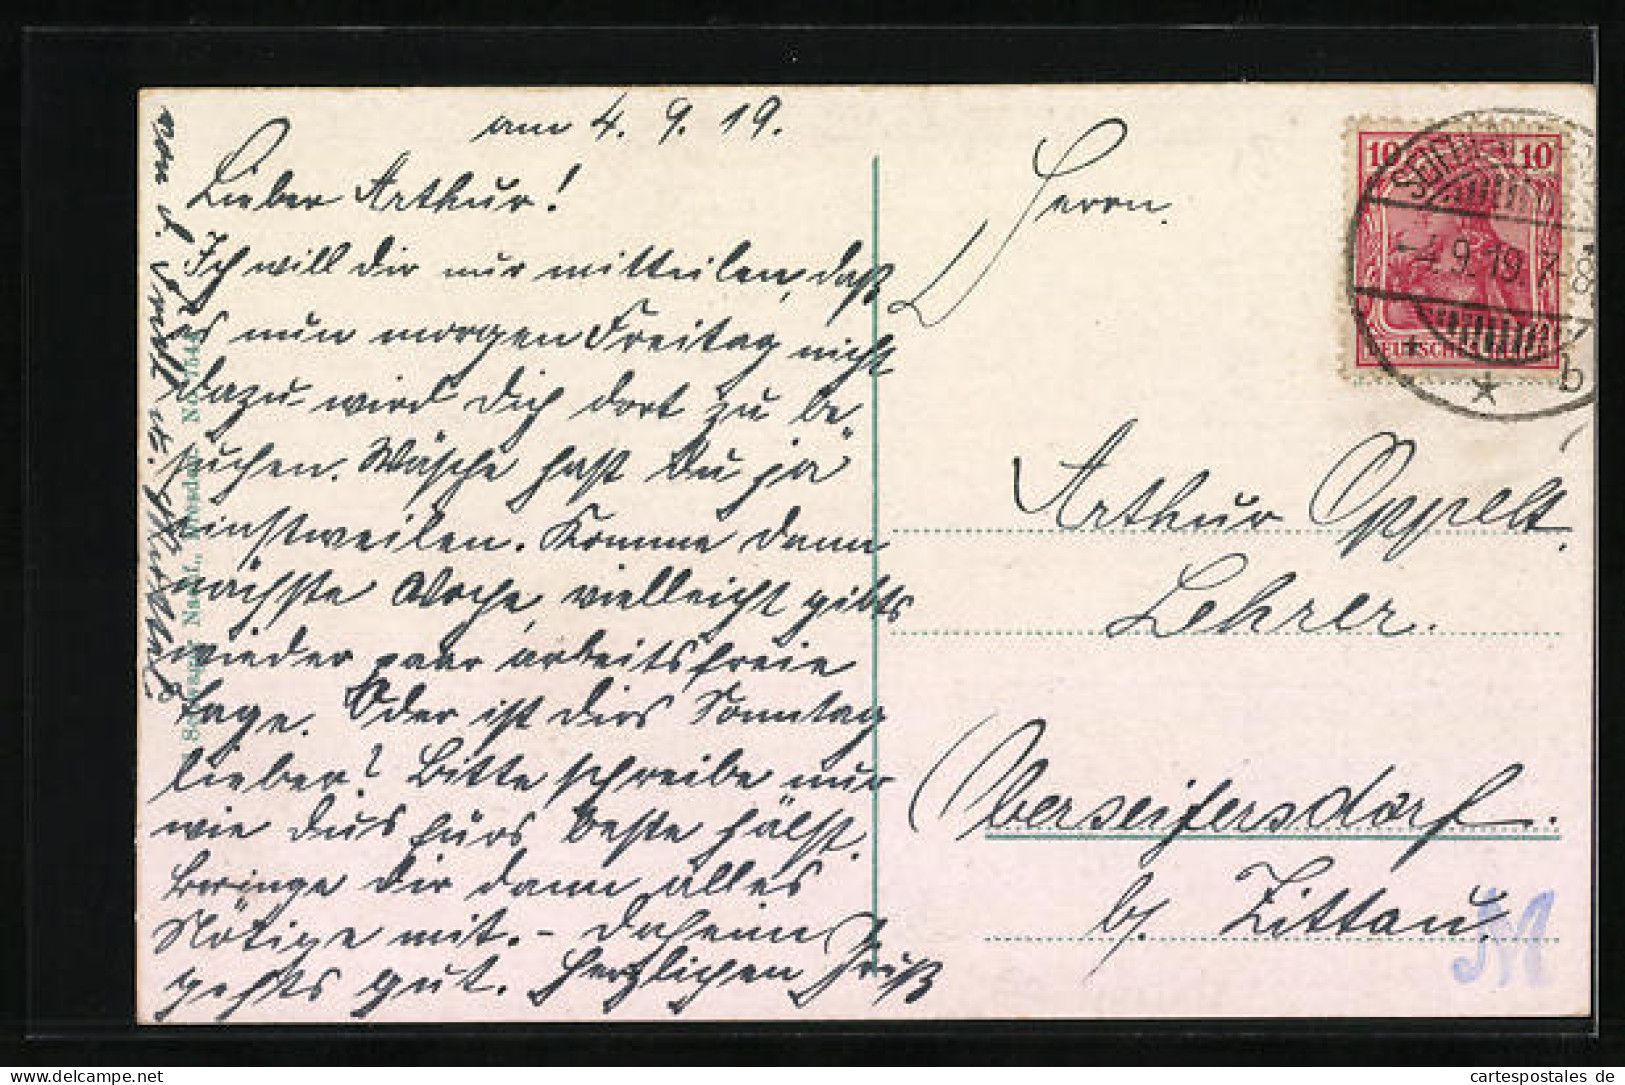 am 4. 9. 19.
Lieber Arthur!
Ich will dir nur mitteilen, daß
es nun morgen Freitag nicht
dazu wird dich dort zu be-
suchen. Wäsche hast Du ja
einstweilen. Komme dann
nächste Woche, vielleicht gibts
wieder paar arbeitsfreie
Tage. Oder ist dirs Sonntag
lieber? Bitte schreibe nur
wie dus fürs Beste hälst.
Bringe dir dann alles
Nötige mit. - Daheim
gehts gut. Herzlichen Gruß
von d.
No.
Herrn
Arthur Oppelt.
Lehrer.
Oberseifersdorf.
b/ Zittau.
M
10 10
DEUTSCHES REICH
-4.9.19. 7-8
* b
Delcampe.net
cartespostales de